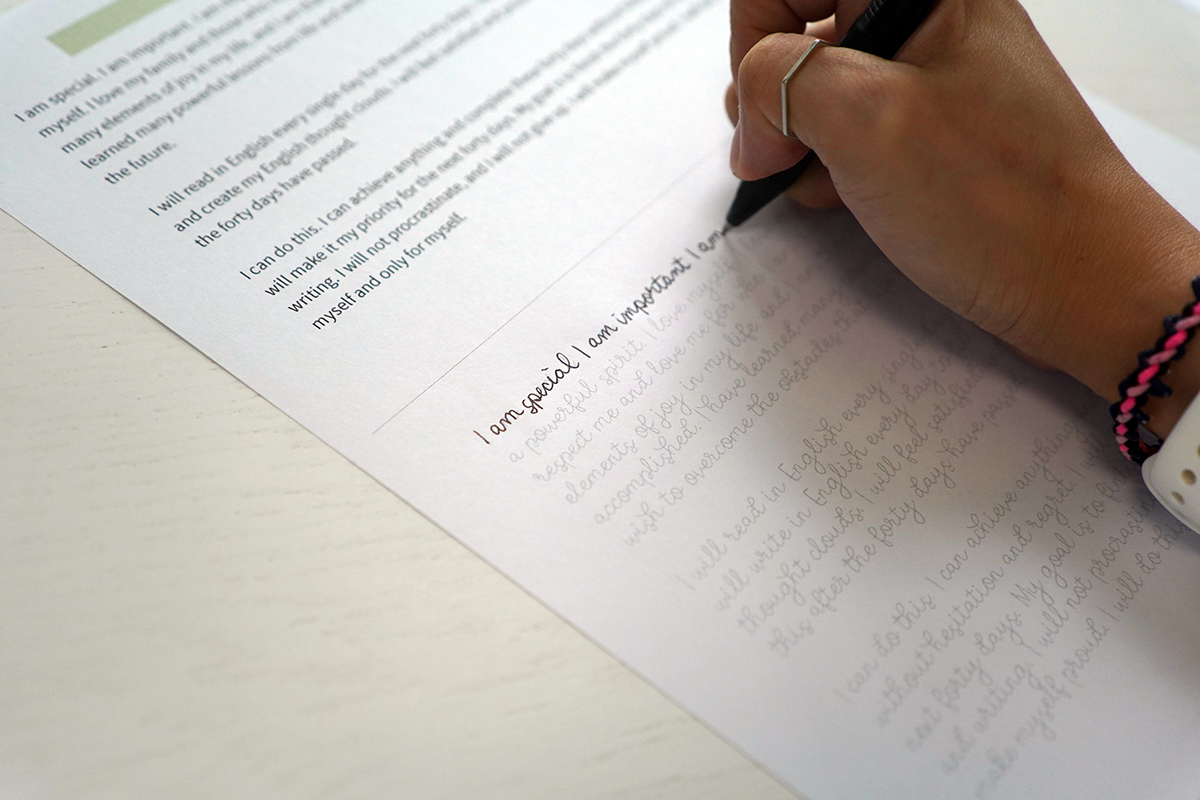 I am special. I am important. I am
myself. I love my family and those who
many elements of joy in my life, and I am
learned many powerful lessons from life and
the future.
I will read in English every single day for the next forty days.
and create my English thought clouds. I will feel satisfied
the forty days have passed.
I can do this. I can achieve anything and complete these forty days
will make it my priority for the next forty days. My goal is to finish
writing. I will not procrastinate, and I will not give up. I will make myself proud
myself and only for myself.
I am special I am important I am
a powerful spirit. I love myself
respect me and love me for who I am
elements of joy in my life, and I
accomplished. I have learned many
wish to overcome the obstacles
I will read in English every single
will write in English every day
thought clouds. I will feel satisfied
this after the forty days have passed
I can do this. I can achieve anything
without hesitation and regret. I
next forty days. My goal is to fin
and writing. I will not procrastin
make myself proud. I will do this